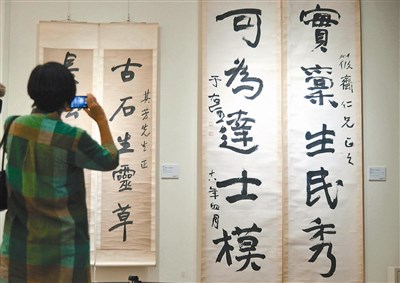 實稟生民秀
筱齋仁兄正之
可為達士模
于右任
十八年四月
古石生靈草
其芳先生正
長